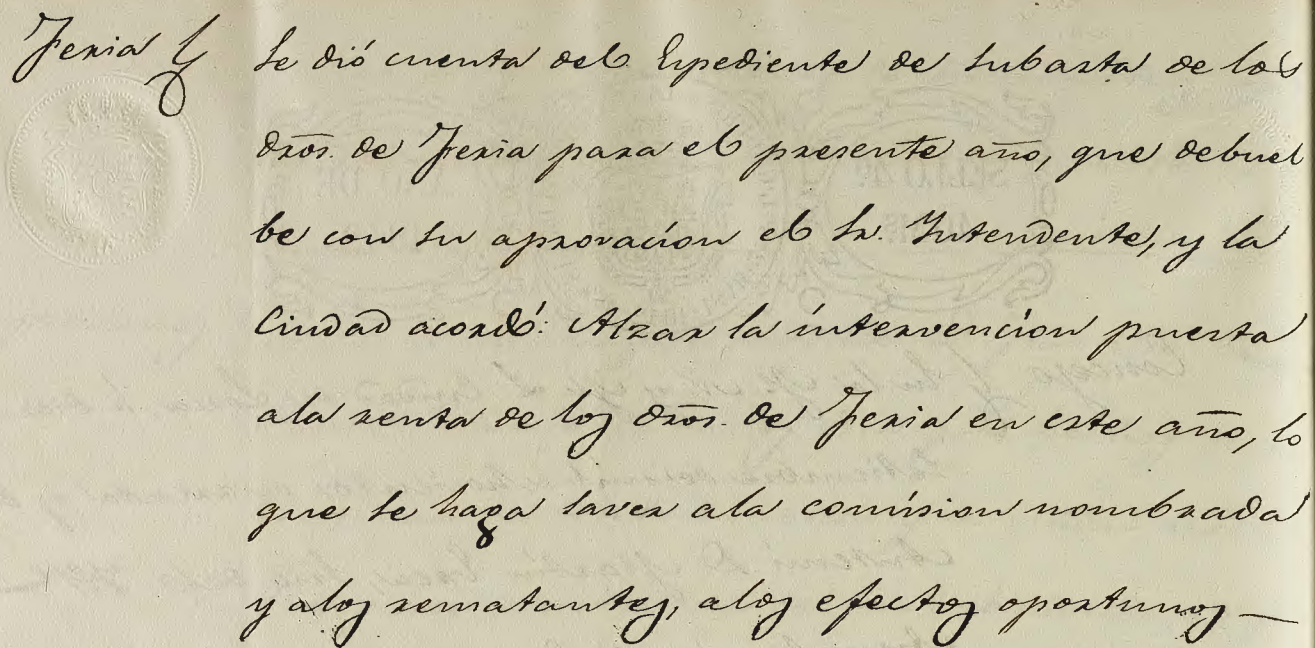 Feria
Se dió cuenta del Espediente de Subasta de los
dros. de Feria para el presente año, que debuel
be con su aprovacion el Sr. Yntendente, y la
Ciudad acordó: Alzar la intervencion puesta
ala renta de los dros. de Feria en este año, lo
que se haga saver ala comision nombrada
y alos rematantes, alos efectos oportunos —